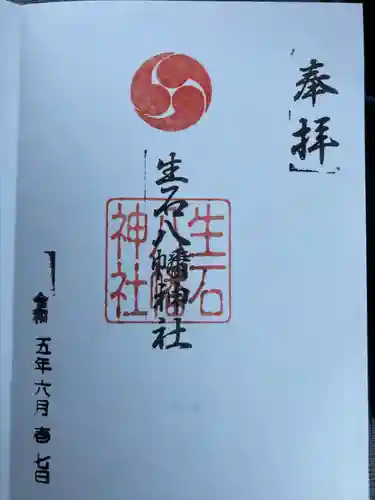 奉拝
生石八幡神社
生石
八幡
神社
令和五年六月壱七日